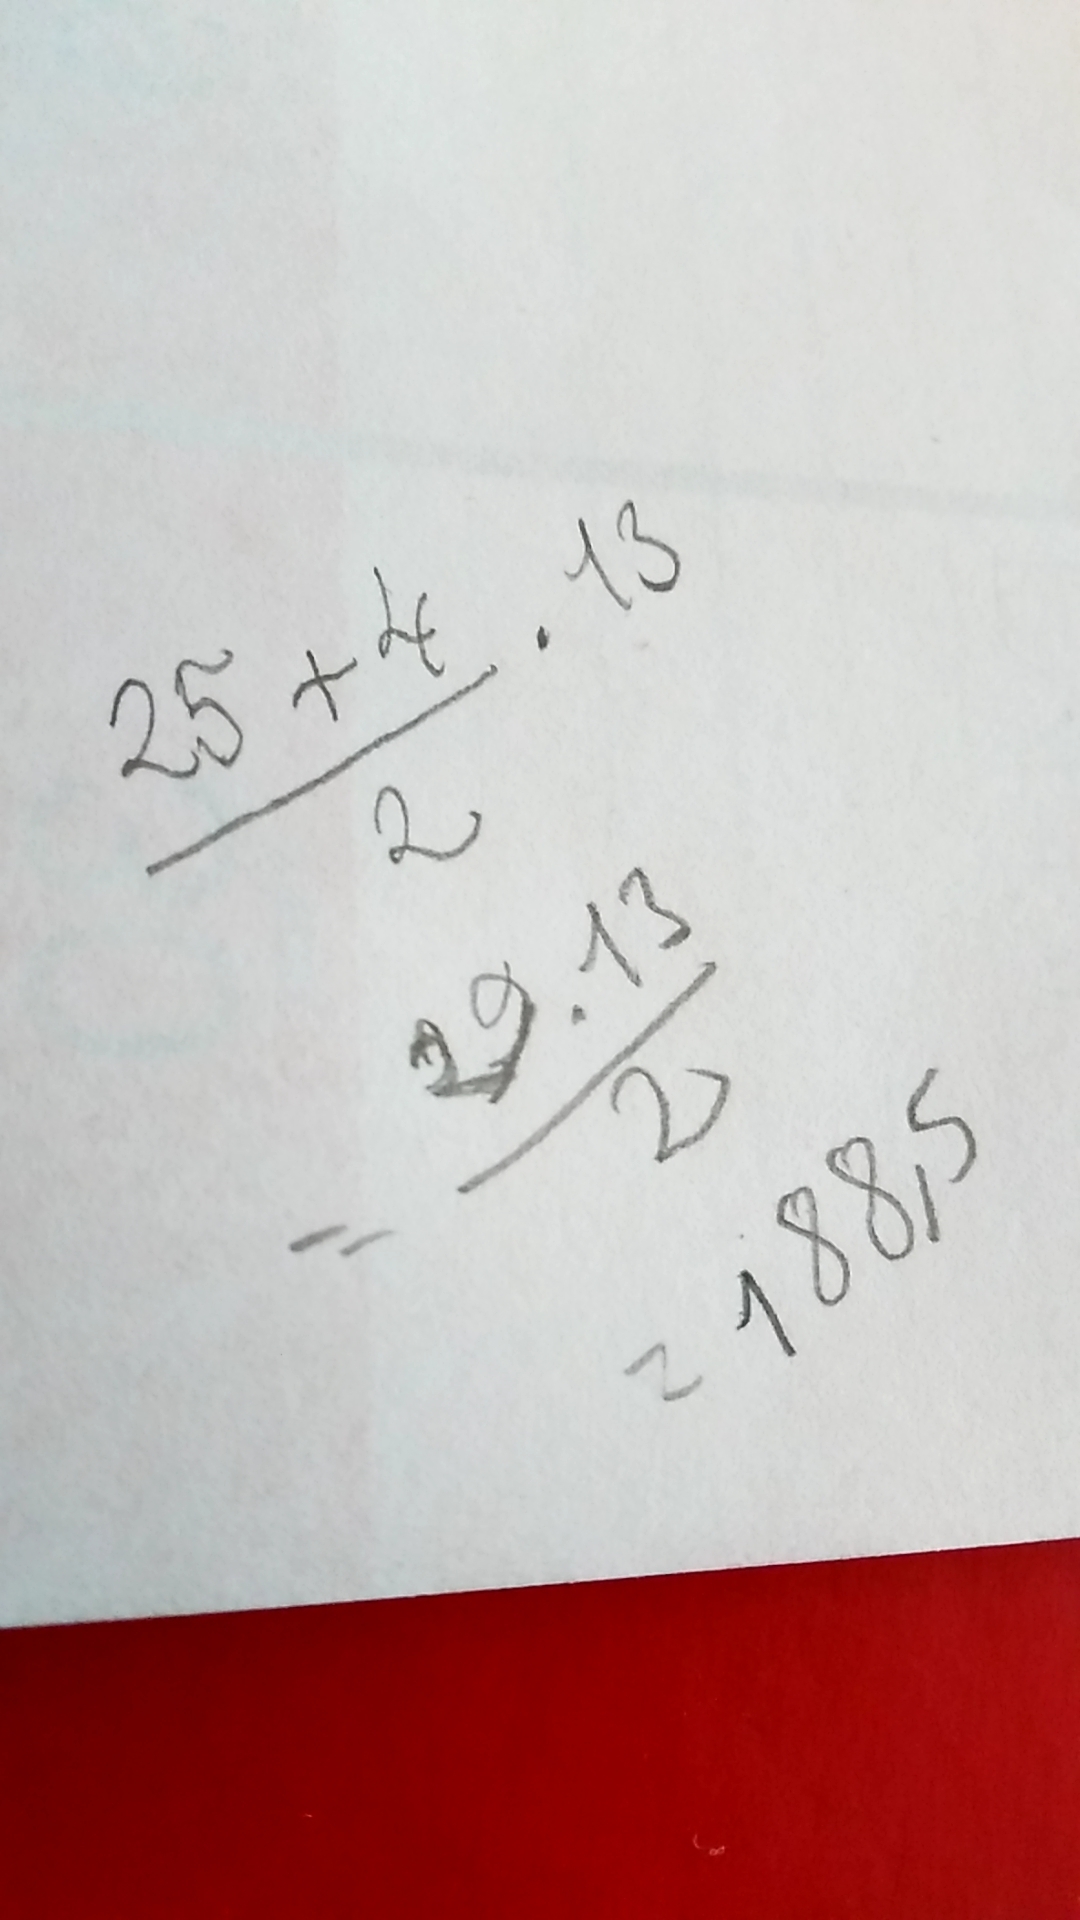 25 + 4 . 13
2
29 . 13
2
=
= 188,5